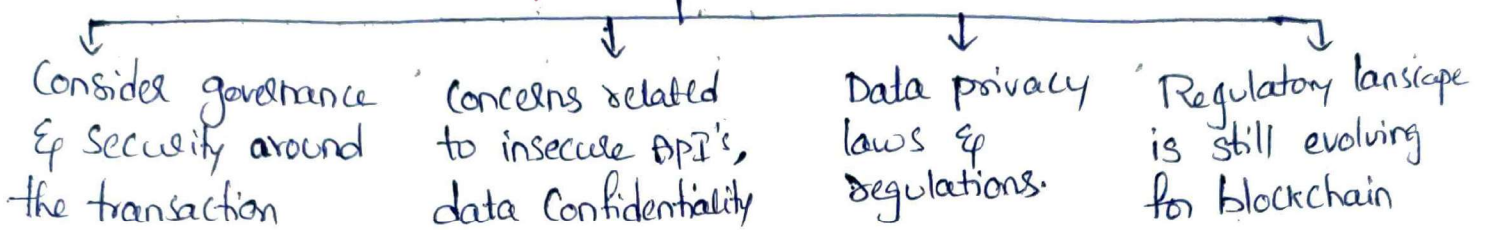 Consider governance
& Security around
the transaction
Concerns related
to insecure API's,
data Confidentiality
Data privacy
laws &
regulations.
Regulatory lanscape
is still evolving
for blockchain